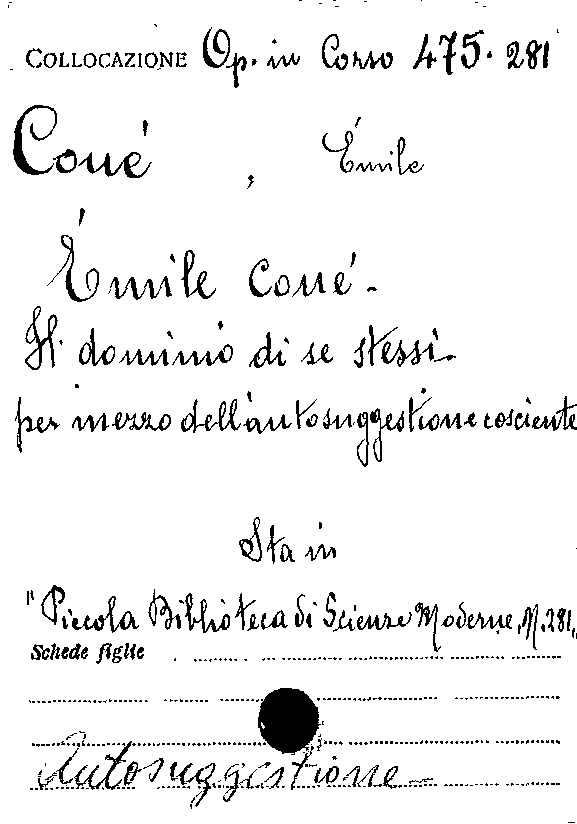 COLLOCAZIONE Op. in Corso 475. 281
Coué , Émile
Émile Coué -
Il dominio di se stessi -
per mezzo dell'autosuggestione cosciente
Sta in
"Piccola Biblioteca di Scienze Moderne, N. 281"
Schede figlie
Autosuggestione -